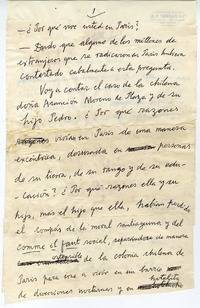 1
— ¿Por qué vive usted en París?
— Dudo que alguno de los millones de
extranjeros que se radicaron en París hubiera
contestado cabalmente a esta pregunta.
Voy a contar el caso de la chilena
doña Asunción Moreno de Plaza y de su
hijo Pedro. ¿Por qué razones
vivían en París de una manera
excéntrica, desusada en personas
de su licora, de su rango y de su edu-
cación? ¿Por qué razones ella y su
hijo, más el hijo que ella, habían perdido
el compás de la moral santiaguina y del
comme il faut social, separándose de manera
de la colonia chilena de
París para irse a vivir en un barrio
de diversiones nocturnas y en